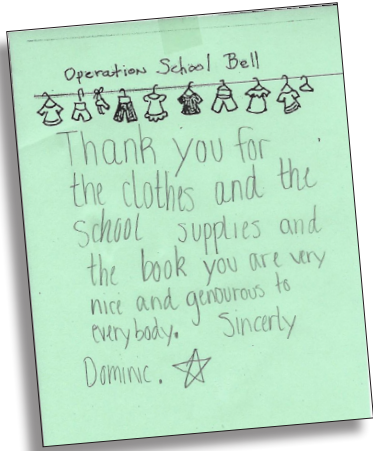 Operation School Bell
Thank you for
the clothes and the
school supplies and
the book you are very
nice and genourous to
everybody. Sincerly
Dominic.